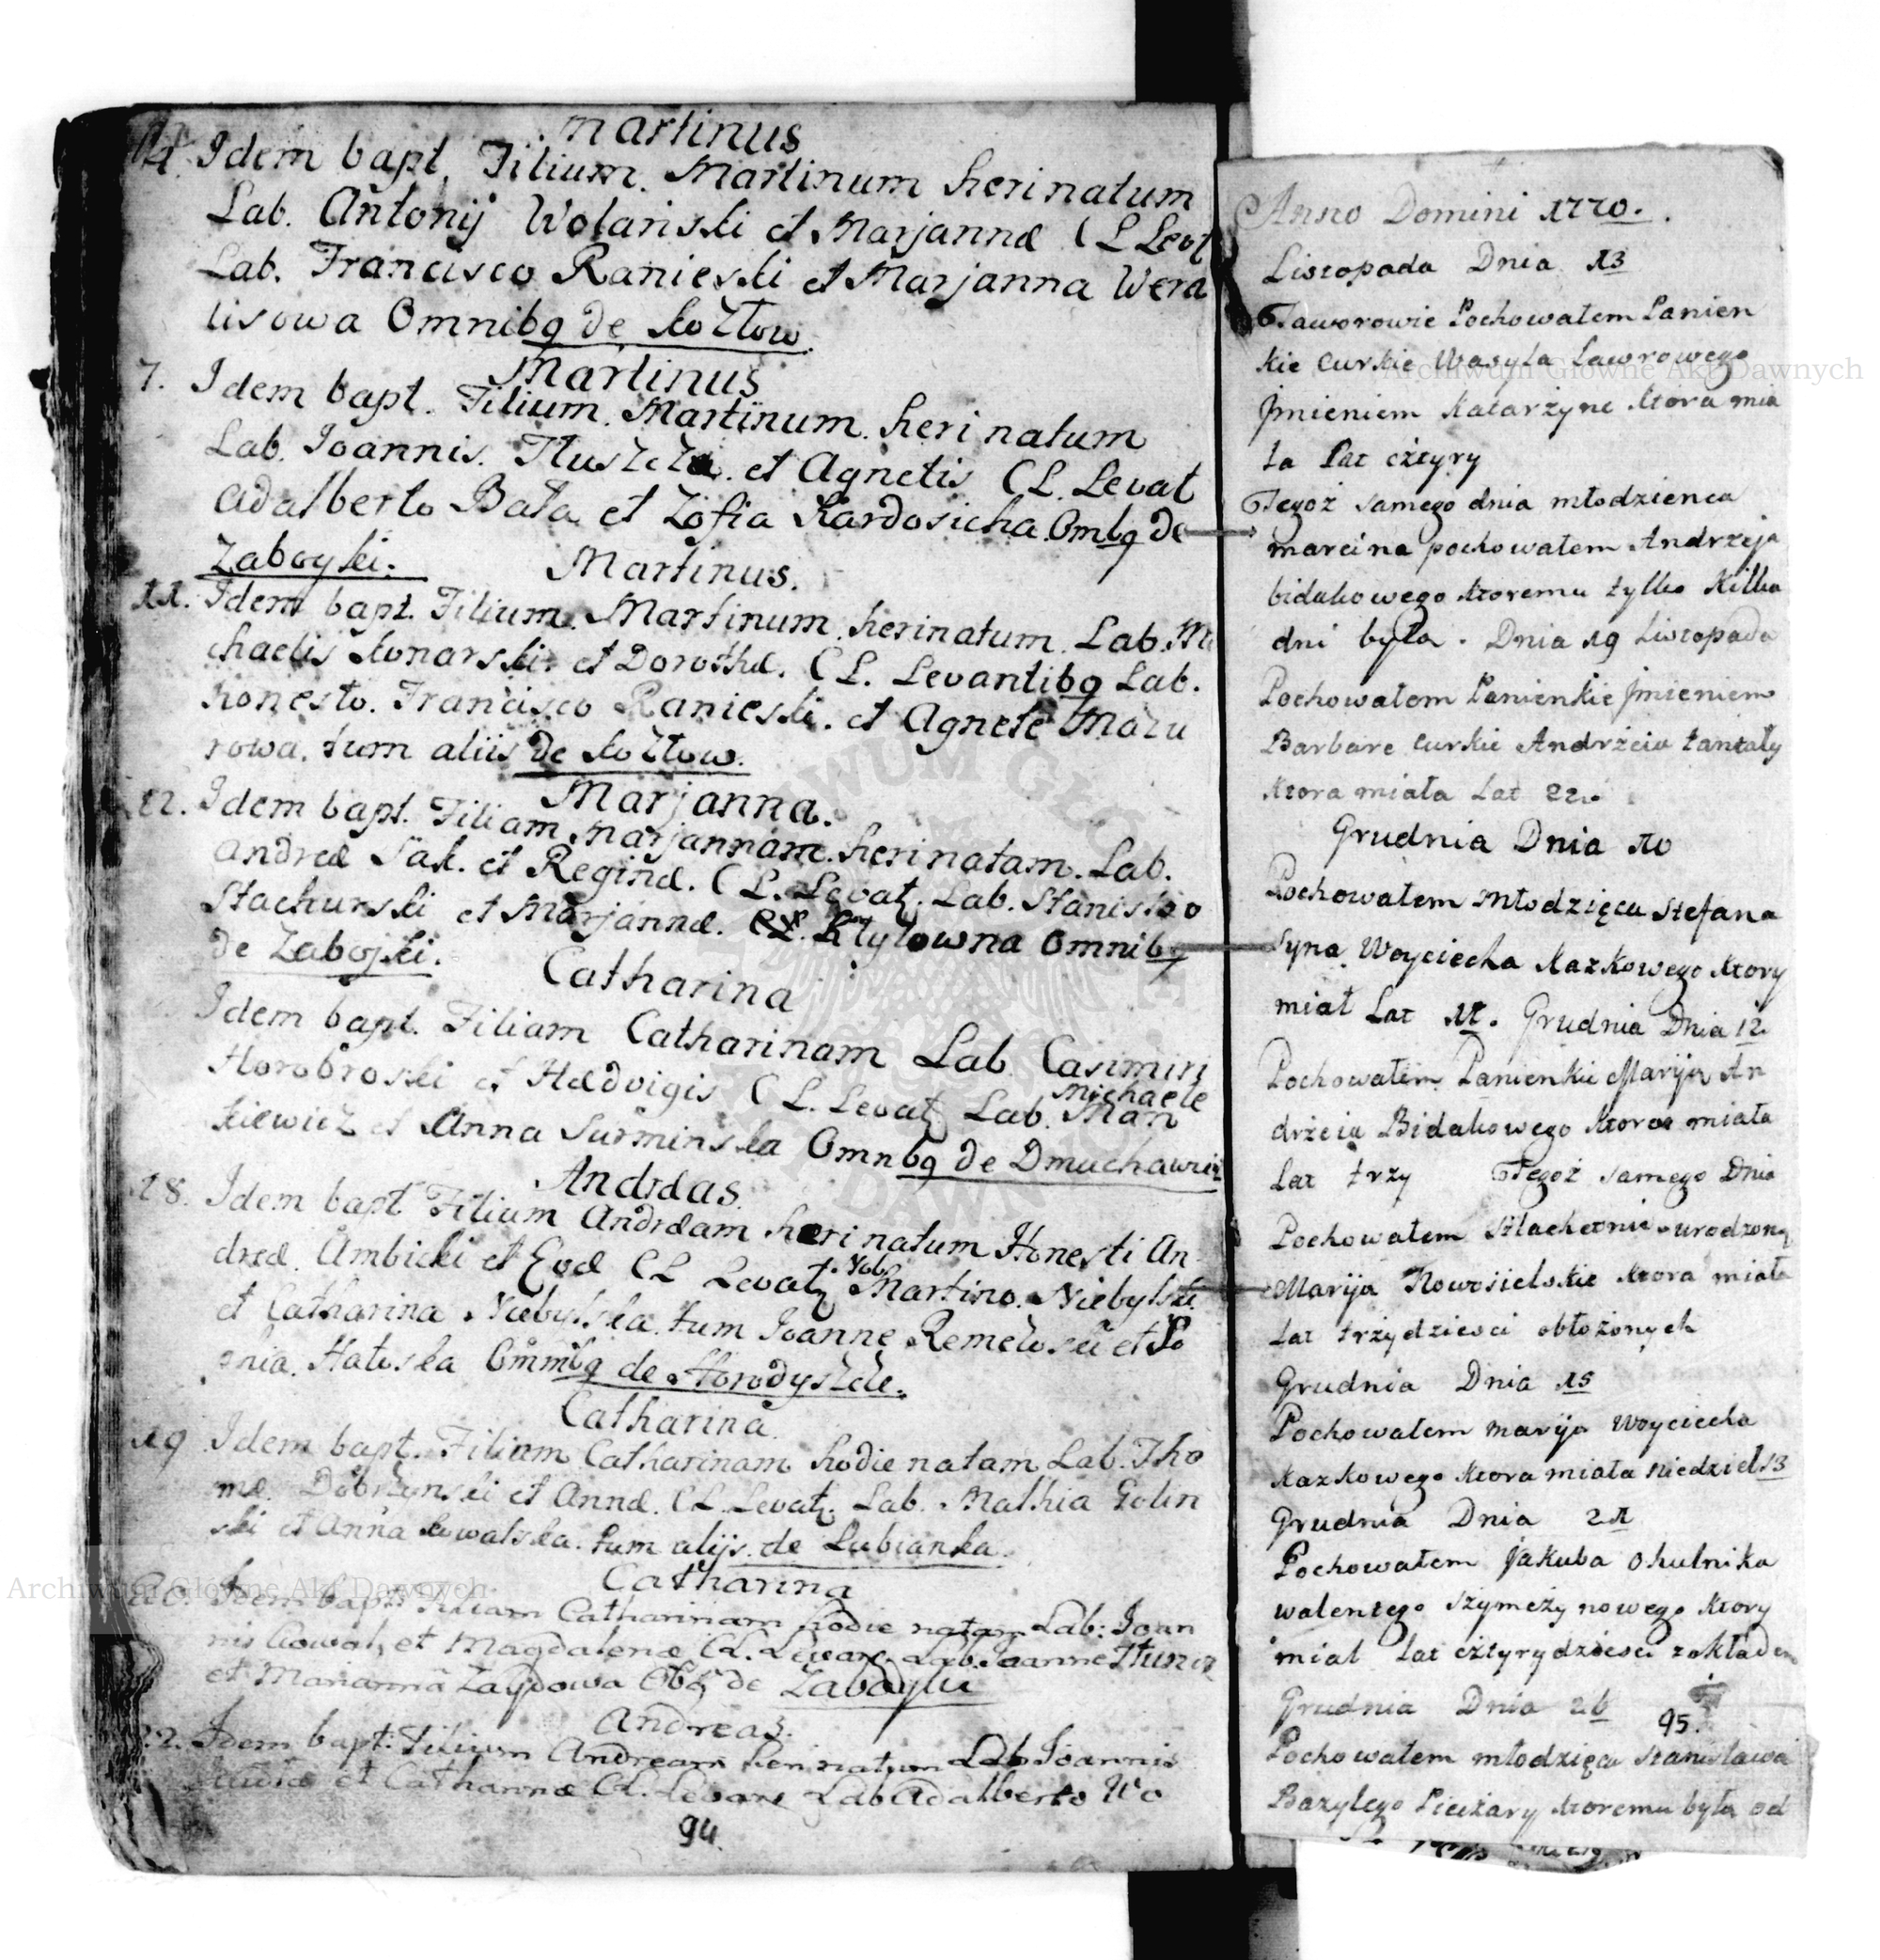 Martinus
14. Idem bapt. Filium. Martinum herinatum
Lab. Antonij Wolanski et Marjannæ CL Levt
Lab. Francisco Ranieski et Marjanna Wera
lisowa Omnibq de Kozłow.
Martinus
7. Idem bapt. Filium. Martinum. heri natum
Lab. Ioannis. et Agnetis CL. Levat
Adalberto Bała et Zofia Kardosicha Ombq de
Zaboyki.
Martinus.
11. Idem bapt. Filium. Martinum herinatum. Lab. Mi
chaelis Konarski. et Dorothæ. CL. Levantibq Lab.
honesto. Francisco Ranieski. et Agnete Mazu
rowa. tum aliis de Kozłow.
Marjanna.
12. Idem bapt. Filiam Marjannam herinatam. Lab.
Andreæ Sak. et Reginæ. CL. Levat. Lab. Stanislao
Stachurski et Marjannæ. Omnibq
de Zabojki.
Catharina
Idem bapt. Filiam Catharinam Lab. Casimiri
Horobroski et Hedvigis CL. Levat Lab. Michaele Man
kiewicz et Anna Surminska Omnbq de Dmuchawiec
Andreas
18. Idem bapt. Filium Andræam heri natum Honesti An
dreæ. Ambicki et Evæ CL Levat Nob. Martino. Niebylski
et Catharina Niebylska. tum Ioanne et So
phia. Omnibq de Horodyszcze.
Catharina.
19 Idem bapt. Filiam Catharinam hodie natam Lab. Tho
mæ. Dobrzynski et Annæ. CL. Levat. Lab. Mathia Golin
ski et Anna Kowalska. tum alijs. de Lubianka.
Catharina
20. Idem bapt. Filiam Catharinam hodie natam Lab: Ioan
nis Kowal, et Magdalenæ CL. Levant Lab. Joanne
et Marianna Zaydowa Obq de Zaboyki
Andreas.
22. Idem bapt: Filium Andream heri natum Lab Joannis
et Catharinæ CL. Levant Lab Adalberto Wo
94.
Anno Domini 1770.
Listopada Dnia 13
Taworowie Pochowałem Panien
kie curkie Wasyla Lawrowego
Jmieniem Katarzyne Ktora mia
ła Lat cztyry
Tegoż samego dnia młodzienca
marcina pochowałem Andrzeja
bidakowego ktoremu tylko Kilka
dni było. Dnia 19 Listopada
Pochowałem Panienkie Jmieniem
Barbare curkie Andrzeia tantały
ktora miała Lat 22.
Grudnia Dnia 10
Pochowałem Młodzięca Stefana
Syna Woyciecha Kazkowego Ktory
miał Lat 11. Grudnia Dnia 12
Pochowałem Panienkie Maryja An
drzeia Bidakowego Ktora miała
Lat trzy Tegoż samego Dnia
Pochowałem Szlachetnie urodzoną
Marija Nowosielskie ktora miała
Lat trzydziesci obłożonych
Grudnia Dnia 15
Pochowałem marija Woyciecha
Kazkowego Ktora miała niedziel 13
Grudnia Dnia 21
Pochowałem Jakuba Ohulnika
walentego Szymczynowego Ktory
miał Lat cztyrydziesci zokładem
Grudnia Dnia 26
95.
Pochowałem młodzięca Stanisława
Bazylego Pieczary Ktoremu było od
Archiwum Główne Akt Dawnych
Archiwum Główne Akt Dawnych